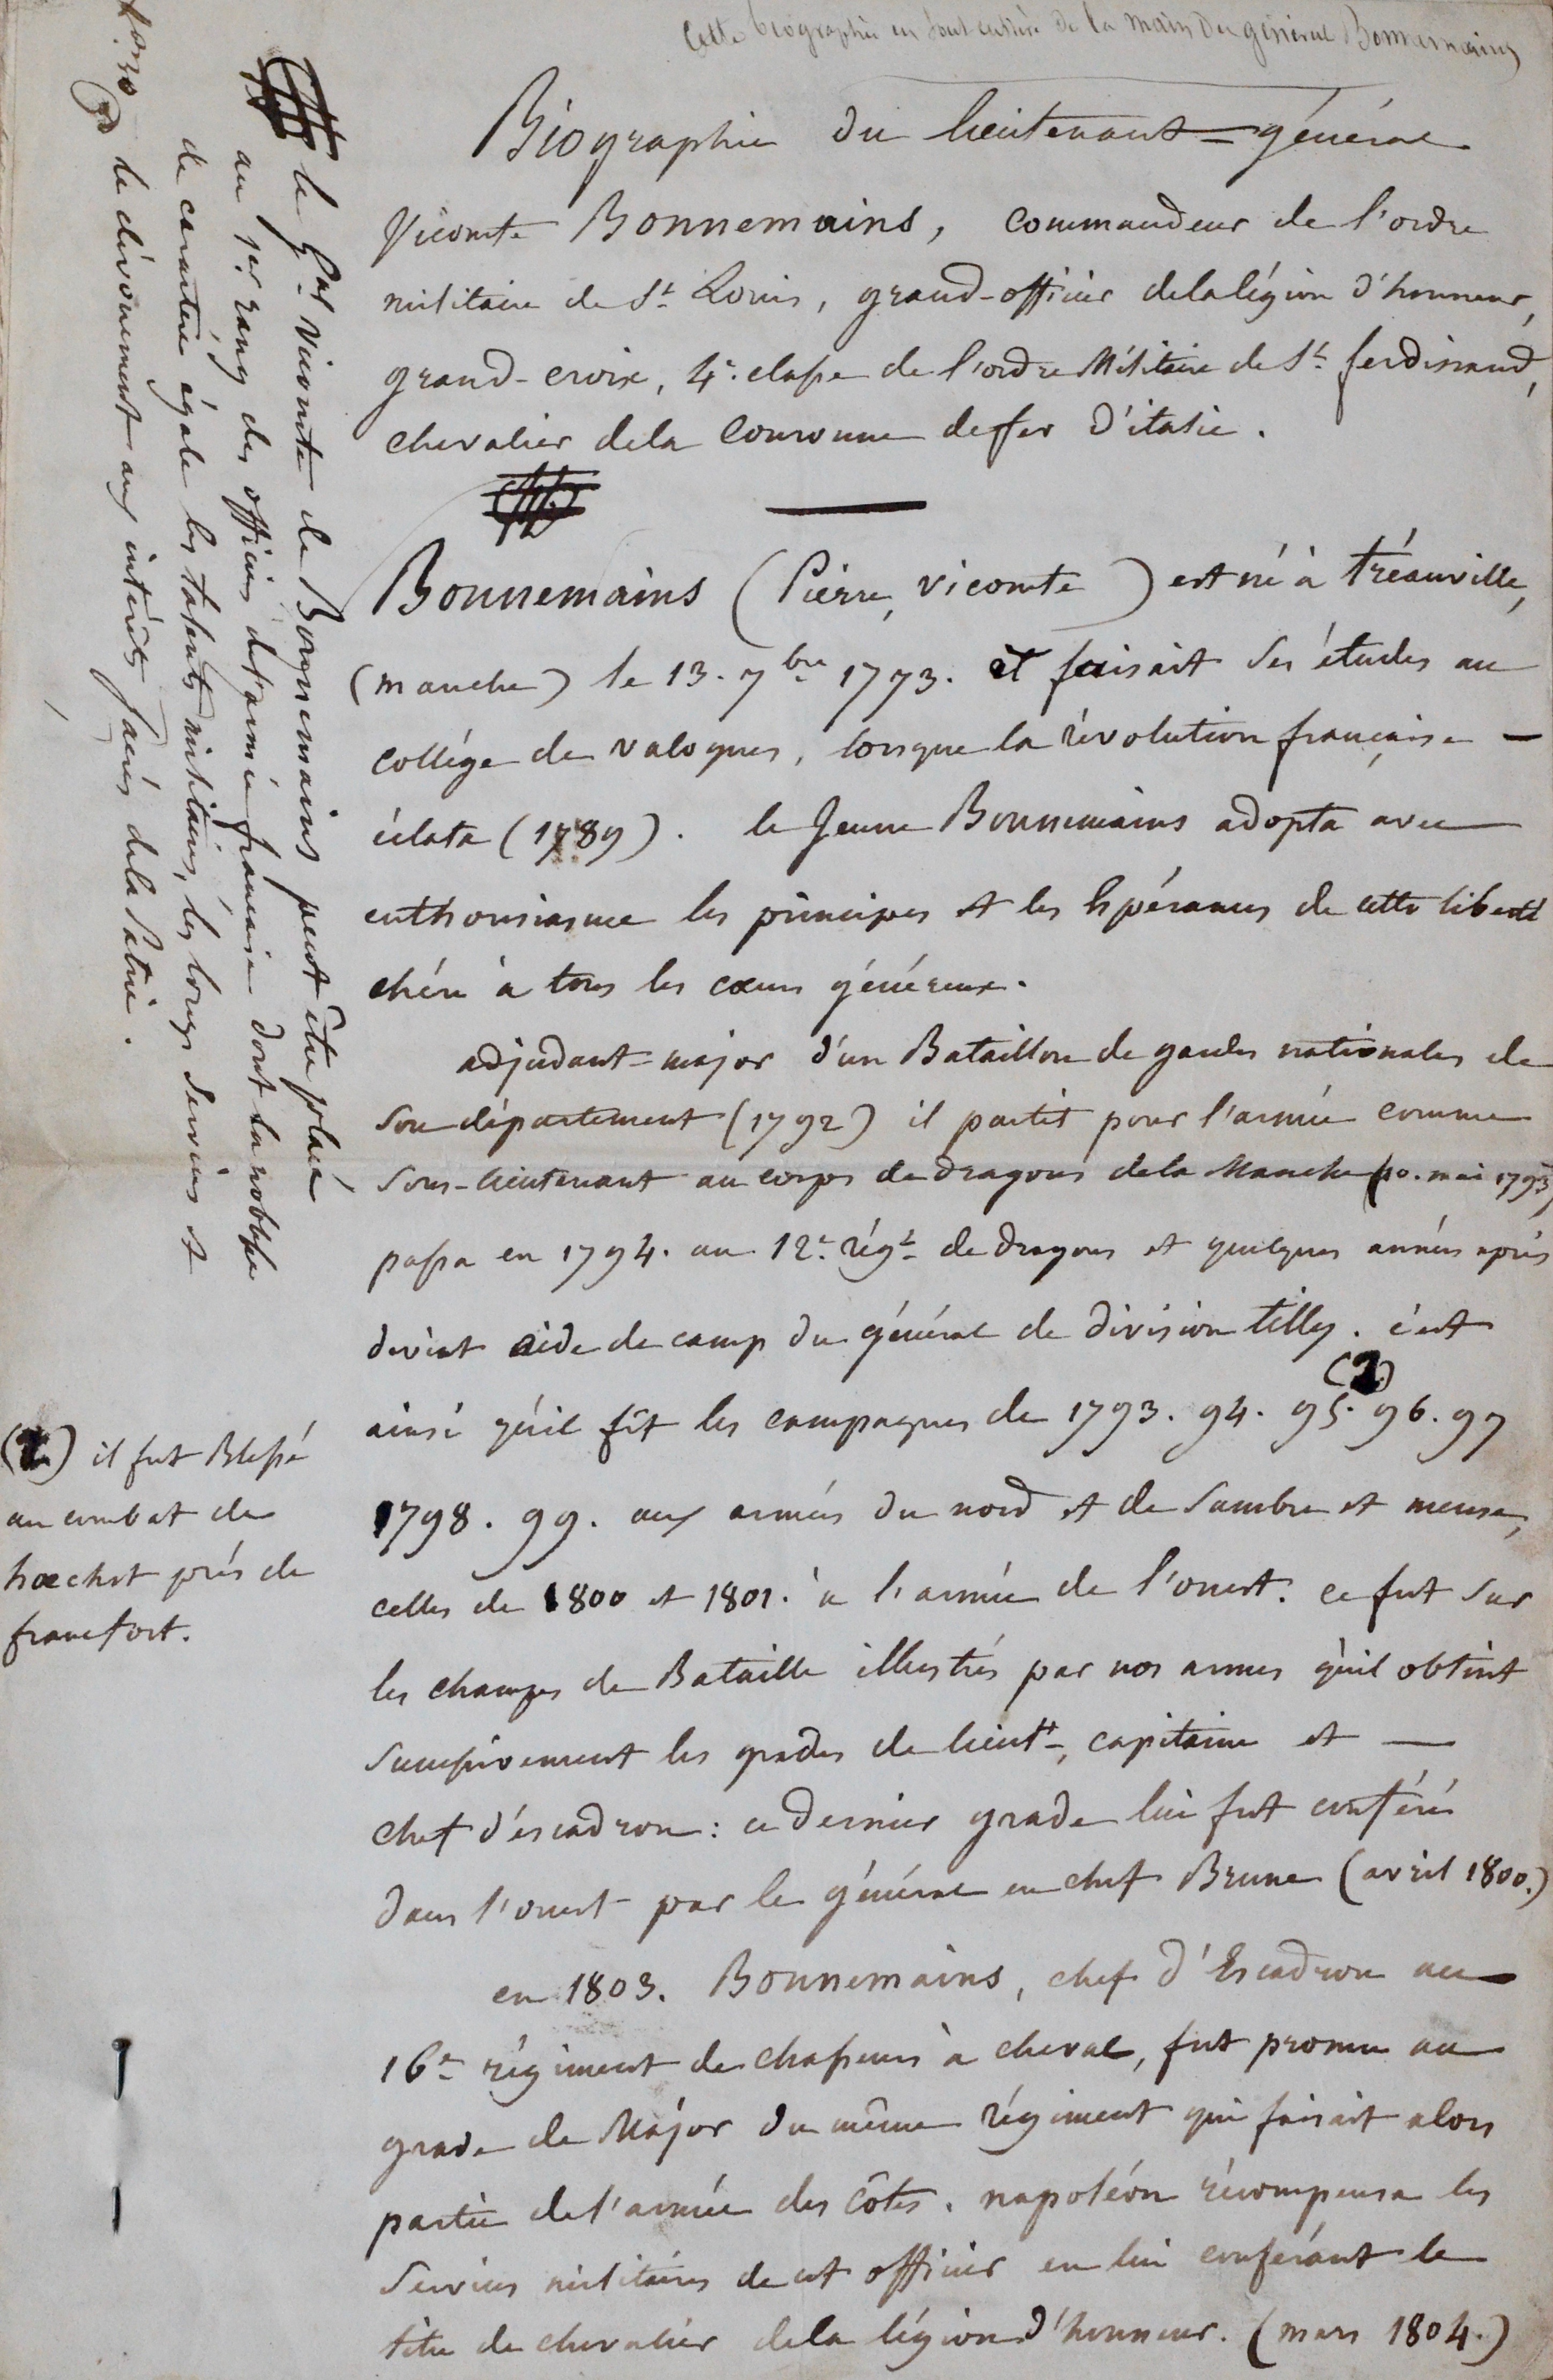 Cette biographie est tout entière de la main du général Bonnemains
Biographie du lieutenant=général
Vicomte Bonnemains, commandeur de l'ordre
militaire de St Louis, grand-officier de la légion d'honneur,
grand-croix, 4e classe de l'ordre Militaire de St ferdinand,
chevalier de la Couronne de fer d'italie.
Bonnemains (Pierre, vicomte) est né à tréauville,
(manche) le 13. 7bre 1773. et faisait ses études au
collége de valognes, lorsque la révolution française —
éclata (1789). le Jeune Bonnemains adopta avec
enthousiasme les principes et les Espérances de cette liberté
chère à tous les cœurs généreux.
adjudant=major d'un Bataillon de gardes nationales de
son département (1792) il partit pour l'armée comme
sous-lieutenant au corps de dragons de la Manche (10. mai 1793)
passa en 1794. au 12e régt de dragons et quelques années après
devint aide de camp du général de division tilly. c'est
ainsi qu'il fit les campagnes de 1793. 94. 95. (2) 96. 97
1798. 99. aux armées du nord et de Sambre et meuse,
celles de 1800 et 1801. à l'armée de l'ouest. ce fut sur
les champs de Bataille illustrés par nos armes qu'il obtint
successivement les grades de lieutt, capitaine et —
chef d'éscadron: ce dernier grade lui fut conféré
dans l'ouest par le général en chef Brune (avril 1800.)
en 1803. Bonnemains, chef d'Escadron au
16e régiment de chasseurs à cheval, fut promu au
grade de Major du même régiment qui faisait alors
partie de l'armée des côtes. napoléon récompensa les
services militaires de cet officier en lui conférant le
titre de chevalier de la légion d'honneur. (mars 1804.)
le Gal Vicomte de Bonnemains peut être placé
au 1er rang des officiers de l'armée française dont la noblesse
de caractère égale les talents militaires, les longs services et
le dévouement aux intérêts sacrés de la Patrie.
(2) il fut Blessé
au combat de
hœchst près de
francfort.